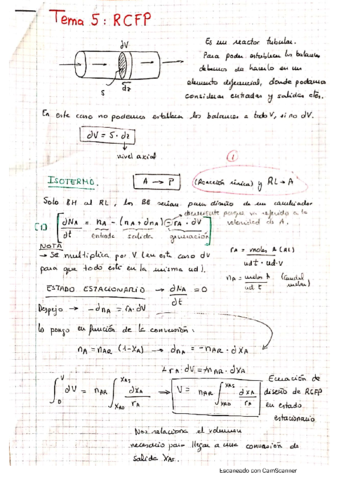 Tema 5: RCFP
dV
S
dz
Es un reactor tubular.
Para poder establecer los balances
debemos de hacerlo en un
elemento diferencial, donde podamos
considerar entradas y salidas ctes.
En este caso no podemos establecer los balances a todo V, si no dV.
dV = S · dz
nivel axial
①
ISOTERMO.
A → P
(Reacción única) y RL → A
Solo BH al RL, los BE serían para diseño de un cambiador
[1] [ dNA/dt = nA - (nA + dnA) - rA · dV ]
velocidad de A.
entrada salida generación
NOTA
→ Se multiplica por V (en este caso dV
para que todo esté en la misma ud).
rA = moles A (RL) / udt · ud·V
nA = moles A / ud t (Caudal molar)
ESTADO ESTACIONARIO → dNA/dt = 0
Despejo → -dnA = rA · dV
lo pongo en función de la conversión:
nA = nAR (1-XA) → dnA = -nAR · dXA
rA dV = nAR · dXA
∫0V dV = nAR ∫XA0XAS dXA/rA → V = nAR ∫XA0XAS dXA/rA
Ecuación de
diseño de RCFP
en estado
estacionario
Nos relaciona el volumen
necesario para llegar a una conversión de
salida XAS.
Escaneado con CamScanner